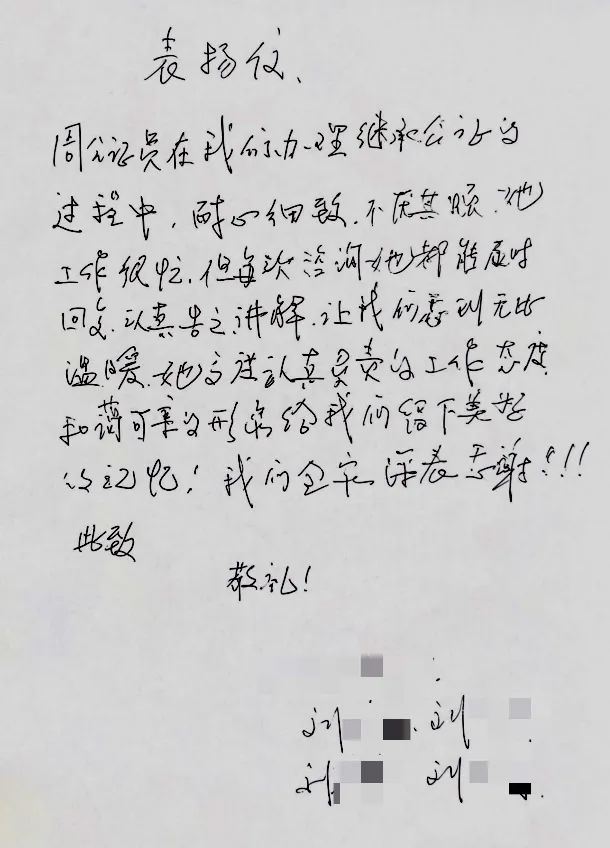 表扬信、
周公证员在我们办理继承公证的
过程中，耐心细致.不厌其烦.她
工作很忙.但每次咨询她都能及时
回复.认真告之.讲解.让我们感到无比
温暖.她高度认真负责的工作态度
和蔼可亲的形象给我们留下美好
的记忆！我们全家深表感谢！！！
此致
敬礼！
刘 刘
刘 刘